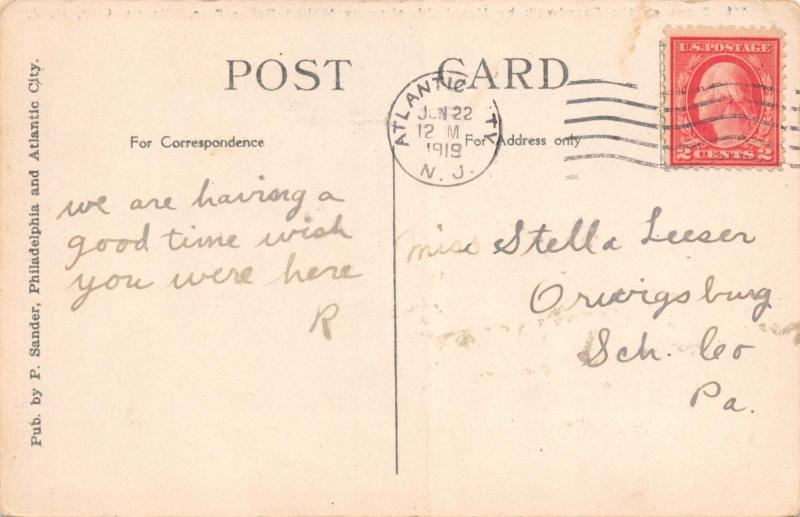 POST CARD
For Correspondence
For Address only
ATLANTIC CITY
JUN 22
12 M
1919
N. J.
U.S. POSTAGE
2 CENTS 2
we are having a
good time wish
you were here
R
Miss Stella Leeser
Orwigsburg
Sch. Co
Pa.
Pub. by P. Sander, Philadelphia and Atlantic City.